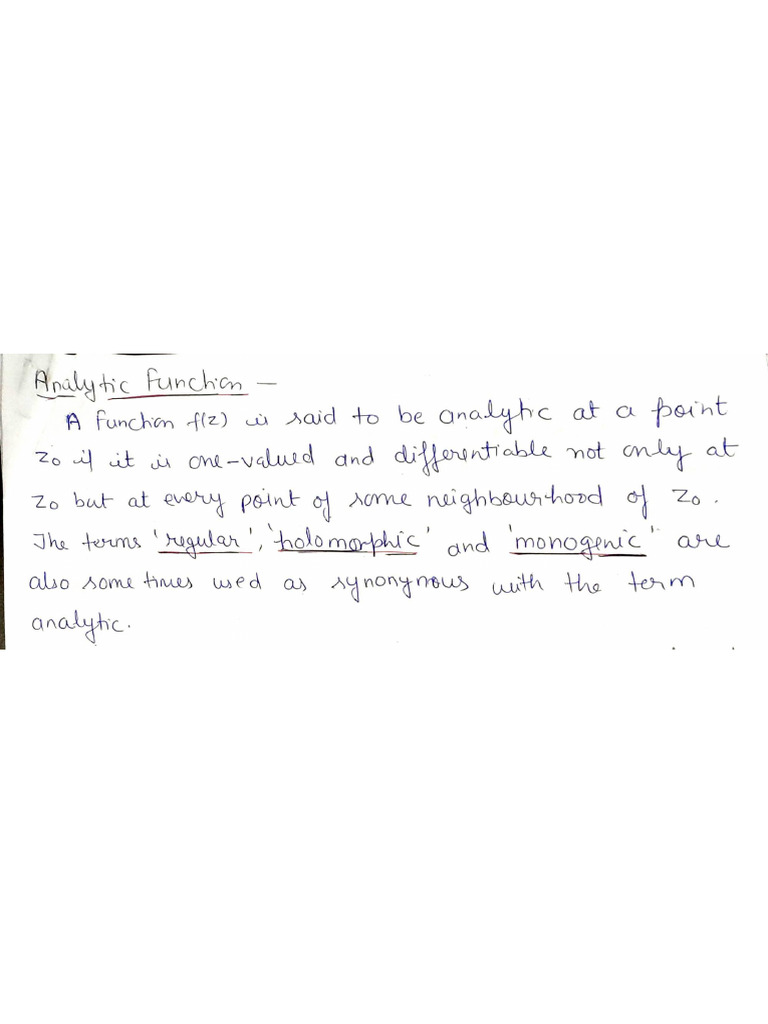 Analytic Function —
A function f(z) is said to be analytic at a point
z₀ if it is one-valued and differentiable not only at
z₀ but at every point of some neighbourhood of z₀.
The terms 'regular', 'holomorphic' and 'monogenic' are
also some times used as synonymous with the term
analytic.